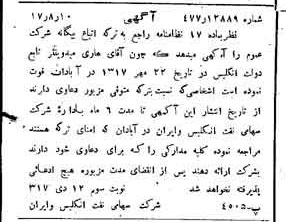 شماره ۴۷۷٫۱۲۸۸۹ آگهی ۱۰ر۸ر۱۷
نظر بماده ۱۷ نظامنامه راجع به ترکه اتباع بیگانه شرکت
عموم را آگهی میدهد که چون آقای هاری میدویتنر تابع
دولت انگلیس در تاریخ ۲۲ مهر ۱۳۱۷ در آبادان فوت
نموده است اشخاصی که نسبت بترکه متوفی مزبور دعاوی دارند
از تاریخ انتشار این آگهی تا مدت ۶ ماه بادارهٔ شرکت
سهامی نفت انگلیس و ایران در آبادان که امنای ترکه هستند
مراجعه نموده کلیه مدارکی را که برای دعاوی خود دارند
بشرکت ارائه دهند پس از انقضای مدت مزبوره هیچ ادعائی
پذیرفته نخواهد شد نوبت سوم ۱۲ دی ۳۱۷
پ-۴۵۰۵ شرکت سهامی نفت انگلیس و ایران